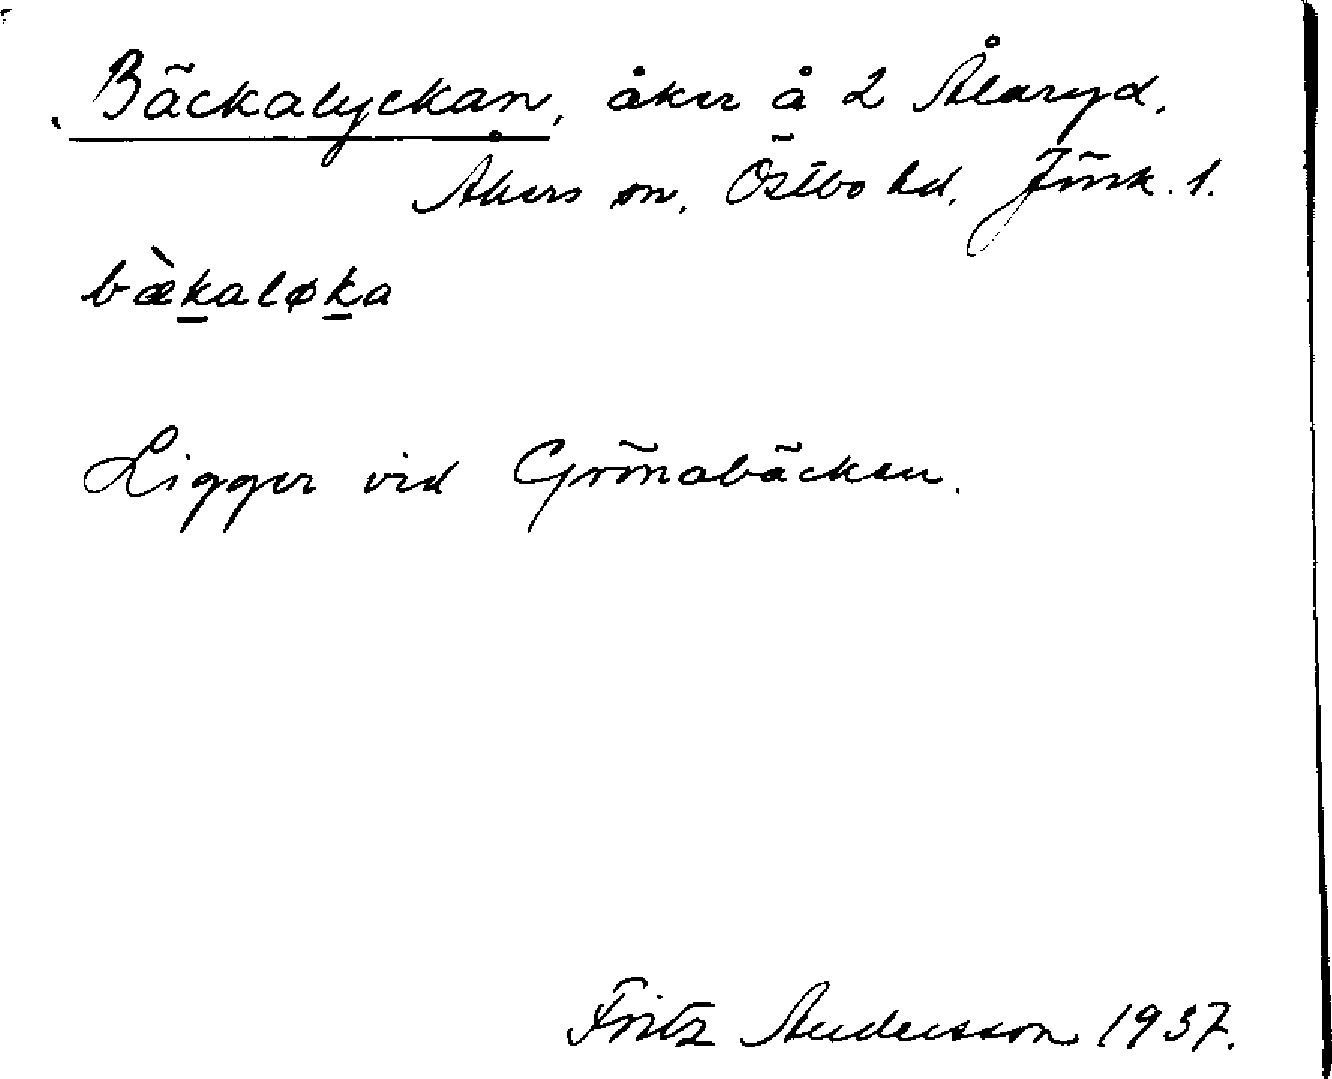 Bäckalyckan, åker å 2 Ålaryd.
Åkers sn. Östbo hd. Jönk. l.
bæ̀k̲aløk̲a
Ligger vid Grönabäcken.
Fritz Andersson 1937.